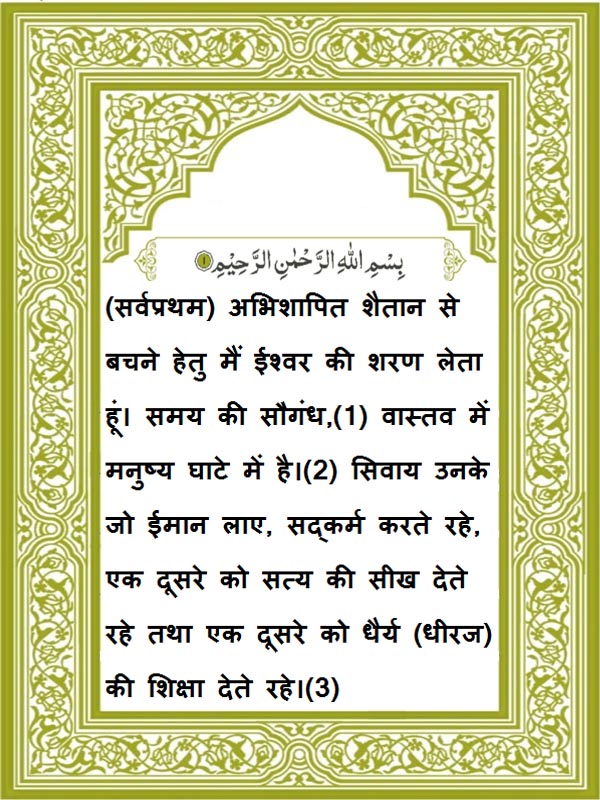 بِسْمِ اللهِ الرَّحْمٰنِ الرَّحِيْمِ ۝١
(सर्वप्रथम) अभिशापित शैतान से
बचने हेतु मैं ईश्वर की शरण लेता
हूं। समय की सौगंध,(1) वास्तव में
मनुष्य घाटे में है।(2) सिवाय उनके
जो ईमान लाए, सद्कर्म करते रहे,
एक दूसरे को सत्य की सीख देते
रहे तथा एक दूसरे को धैर्य (धीरज)
की शिक्षा देते रहे।(3)